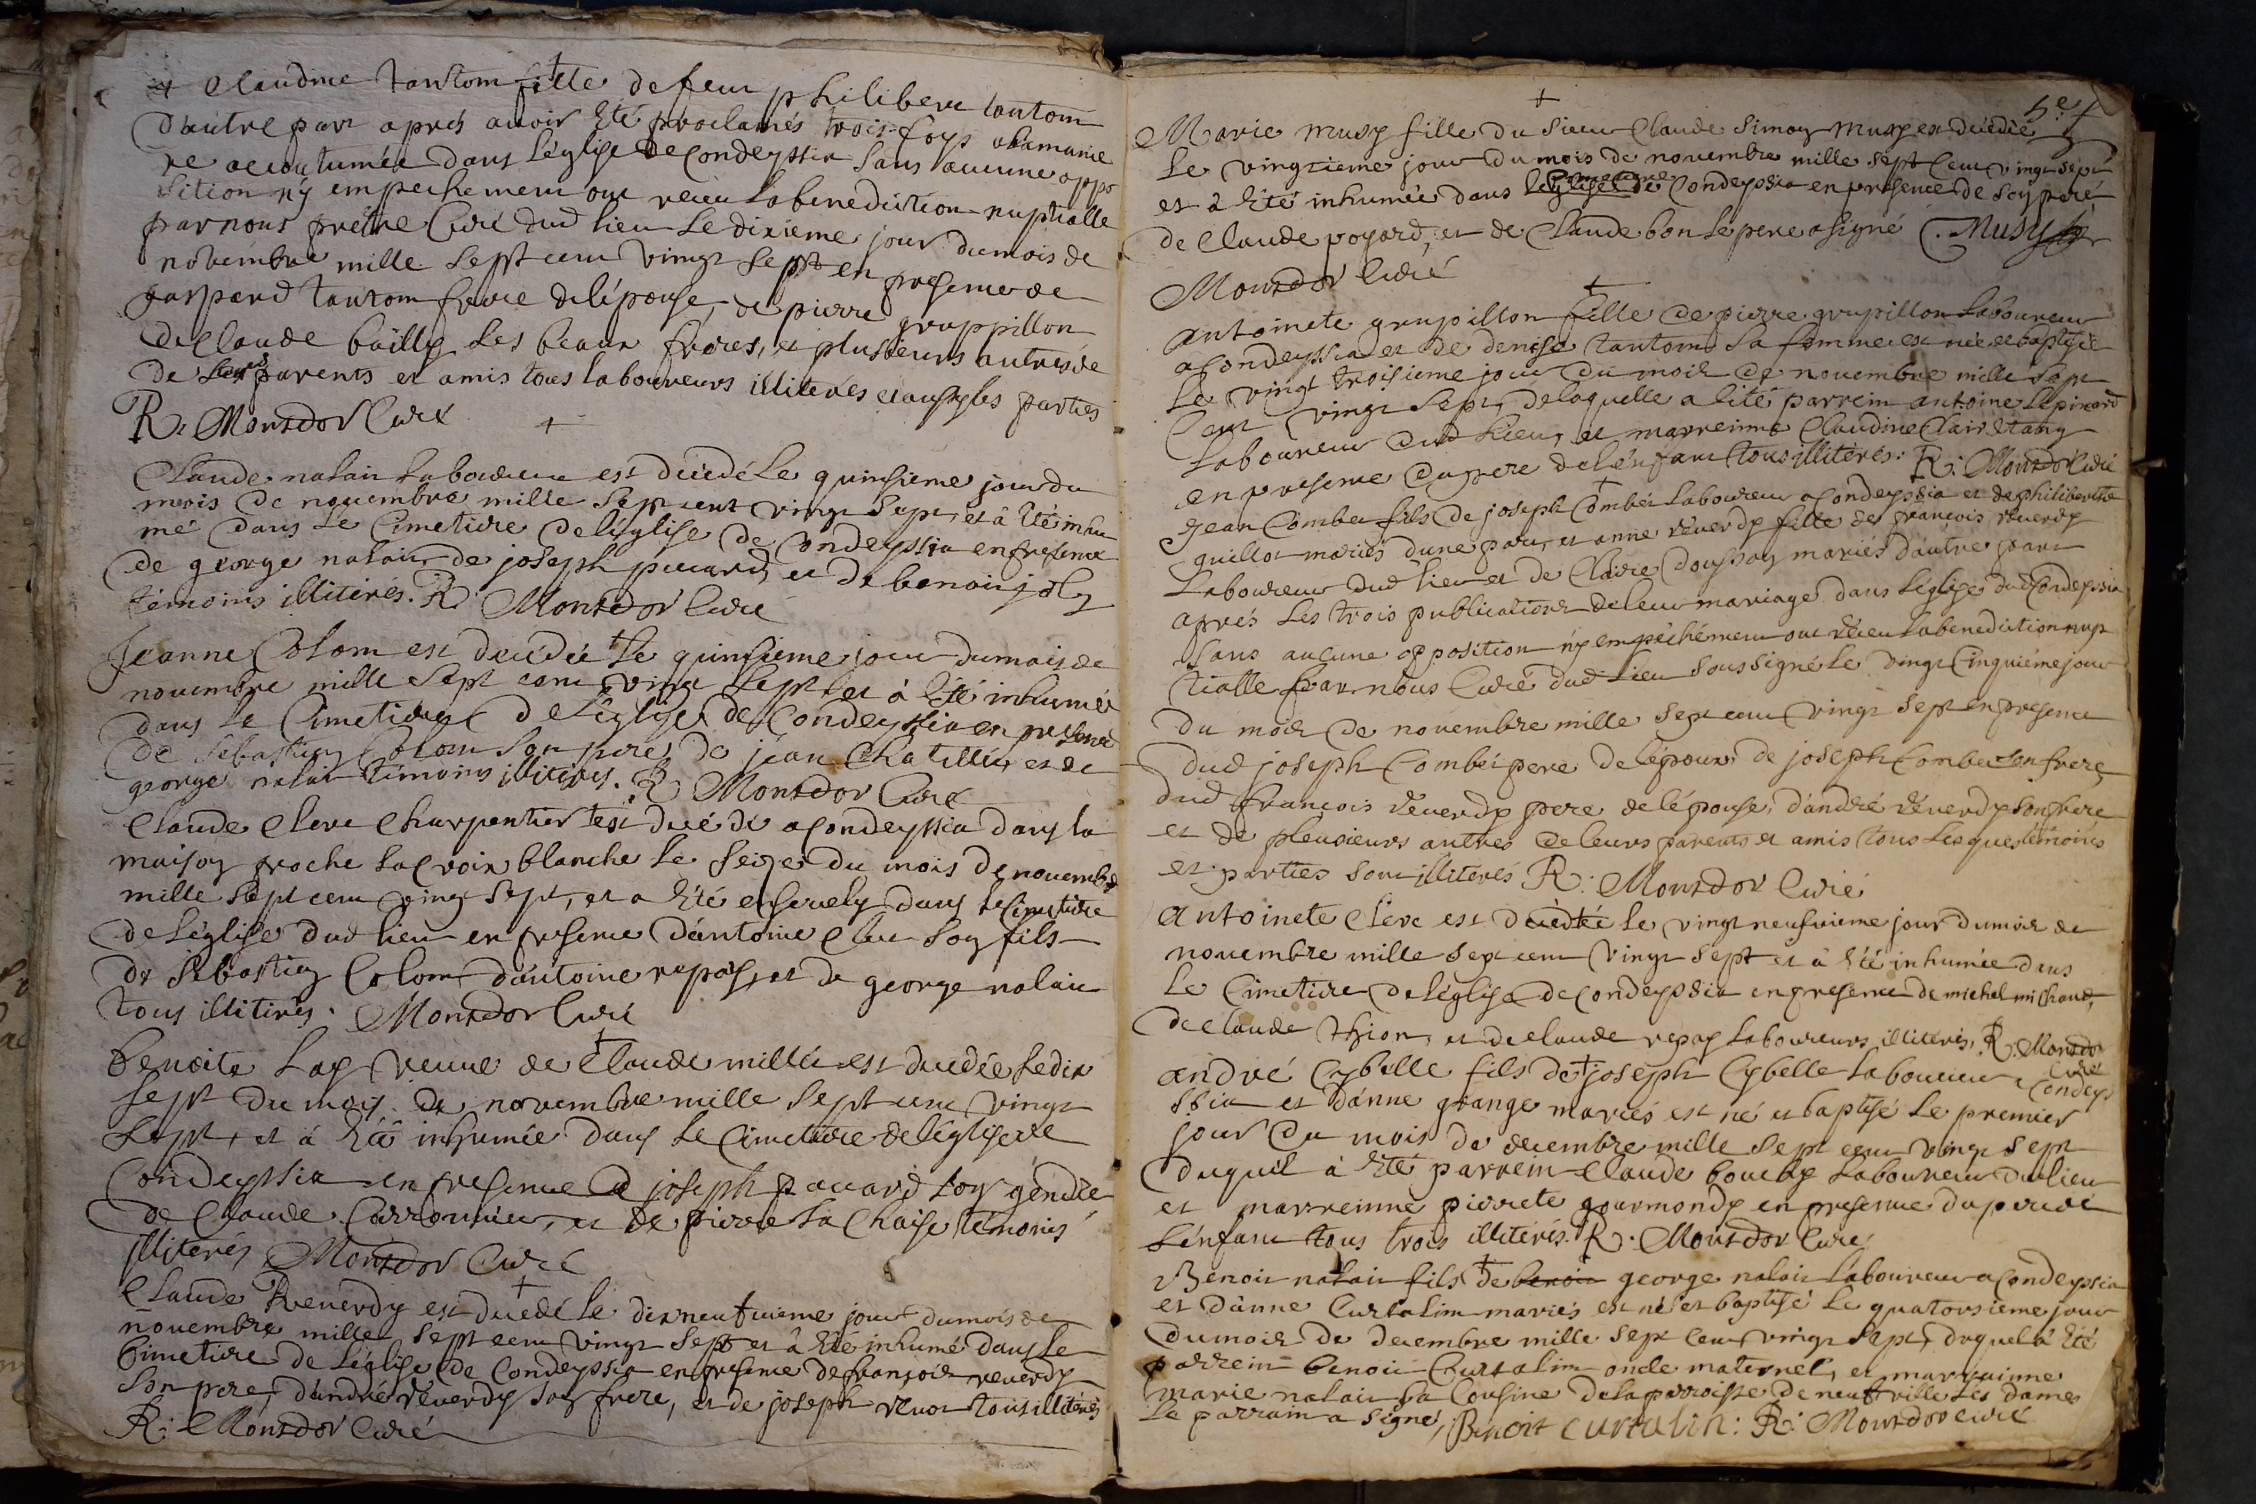 et Claudine tantom fille de feu philibert tantom
d'autre part aprés avoir êté proclamés trois foys a la manie
re accoutumée dans l'église de Condeyssia sans aucune oppo
sition n'y empechement ont receu la benediction nuptialle
par nous prêtre Curé dud lieu le dixieme jour du mois de
novembre mille sept cent vingt sept en presence de
gaspard tantom frere de l'épouse, de pierre gruppillon
de Claude bailly les beaux freres, et plusieurs autres de
de leurs parents et amis tous laboureurs illiterés et aussy les parties
R. Montdor Curé
Claude nalair laboureur est décédé le quinsieme jour du
mois de novembre mille sept cent vingt sept, et â êté inhu
mé dans le Cimetiere de l'église de Condeyssia en presence
de george nalair, de joseph picard, et de benoit joly
témoins illiterés. R. Montdor Curé
Jeanne Colom est decédée le quinsieme jour du mois de
novembre mille sept cent vingt sept et â êté inhumée
dans le Cimetiere de l'église de Condeyssia en presence
de sebastien Colom son pere, de jean Chatillu, et de
george nalair témoins illiterés. R. Montdor Curé
Claude Clere Charpentier est decédé a Condeyssia dans la
maison proche la Croix blanche le seize du mois de novembre
mille sept cent vingt sept, et a êté ensevely dans le Cimetiere
de l'église dud lieu en presence d'antoine Clere son fils
de sebastien Colom, d'antoine repay, et de george nalair
tous illiterés. Montdor Curé
Benoite Lay veuve de Claude millu est decédée le dix
sept du mois de novembre mille sept cent vingt
sept, et â êté inhumée dans le Cimetiere de l'église de
Condeyssia en presence de joseph pauard son gendre,
de Claude Carronnier, et de pierre la Chaise témoins
illiterés Montdor Curé
Claude Reverdy est decédé le dix neufvieme jour du mois de
novembre mille sept cent vingt sept et â êté inhumé dans le
Cimetiere de l'église de Condeyssia en presence de françois reverdy
son pere, d'andré réverdy son frere, et de joseph revot tous illiterés
R. Montdor Curé
Marie musy fille du sieur Claude simon musy est decédée
le vingtieme jour du mois de novembre mille sept Cent vingt sept
et â êté inhumée dans l'église Cimetiere de Condeyssia en presence de son pere
de Claude poyard, et de Claude bon le pere a signé C. Musy
Montdor Curé
antoinete grupillon fille de pierre grupillon laboureur
a Condeyssia et de denise tantom sa femme est née et baptisée
le vingt troisieme jour du mois de novembre mille sept
Cent vingt sept, de laquelle a êté parrein antoine lépinard
laboureur dud lieu, et marreinne Claudine Clair êtang
en presence du pere de l'enfant tous illiterés. R. Montdor Curé
jean Combet fils de joseph Combet laboureur a Condeyssia et de philiberte
guillot mariés d'une part, et anne réverdy fille de françois réverdy
laboureur dud lieu et de Claire Doussoy mariés d'autre part
aprés les trois publications de leur mariage dans l'église dud Condeyssia
sans aucune opposition n'y empéchément ont réceu la benediction nup
tialle par nous Curé dud lieu soussigné le vingt Cinquiéme jour
du mois de novembre mille sept cent vingt sept en presence
dud joseph Combet pere de l'époux, de joseph Combet son frere,
dud françois réverdy pere de l'épouse, d'andré réverdy son frere
et de plusieurs autres de leurs parents et amis tous lesques témoins
et parties sont illiterés R. Montdor Curé
antoinete Clere est decédée le vingt neufvieme jour du mois de
novembre mille sept cent vingt sept et â êté inhumée dans
le Cimetiere de l'église de Condeyssia en presence de michel michaud,
de Claude thion, et de Claude repay laboureurs illiterés, R. Montdor
Curé
andré Cybelle fils de joseph Cybelle laboureur a Condeys
sia et d'anne grange mariés est né et baptisé le premier
jour du mois de decembre mille sept cent vingt sept
duquel â êté parrein Claude bouchy laboureur dud lieu
et marreinne pierrete gourmondy en presence du pere de
l'enfant tous trois illiterés. R. Montdor Curé
Benoit nalair fils de benoit george nalair laboureur a Condeyssia
et d'anne Curtalim mariés est né et baptisé le quatorsieme jour
du mois de decembre mille sept Cent vingt sept, duquel â êté
parrein benoit Curtalim oncle maternel, et marrainne
marie nalair sa Cousine de la parroisse de neufville les dames
le parrain a signé, Benoit Curtalin: R. Montdor Curé